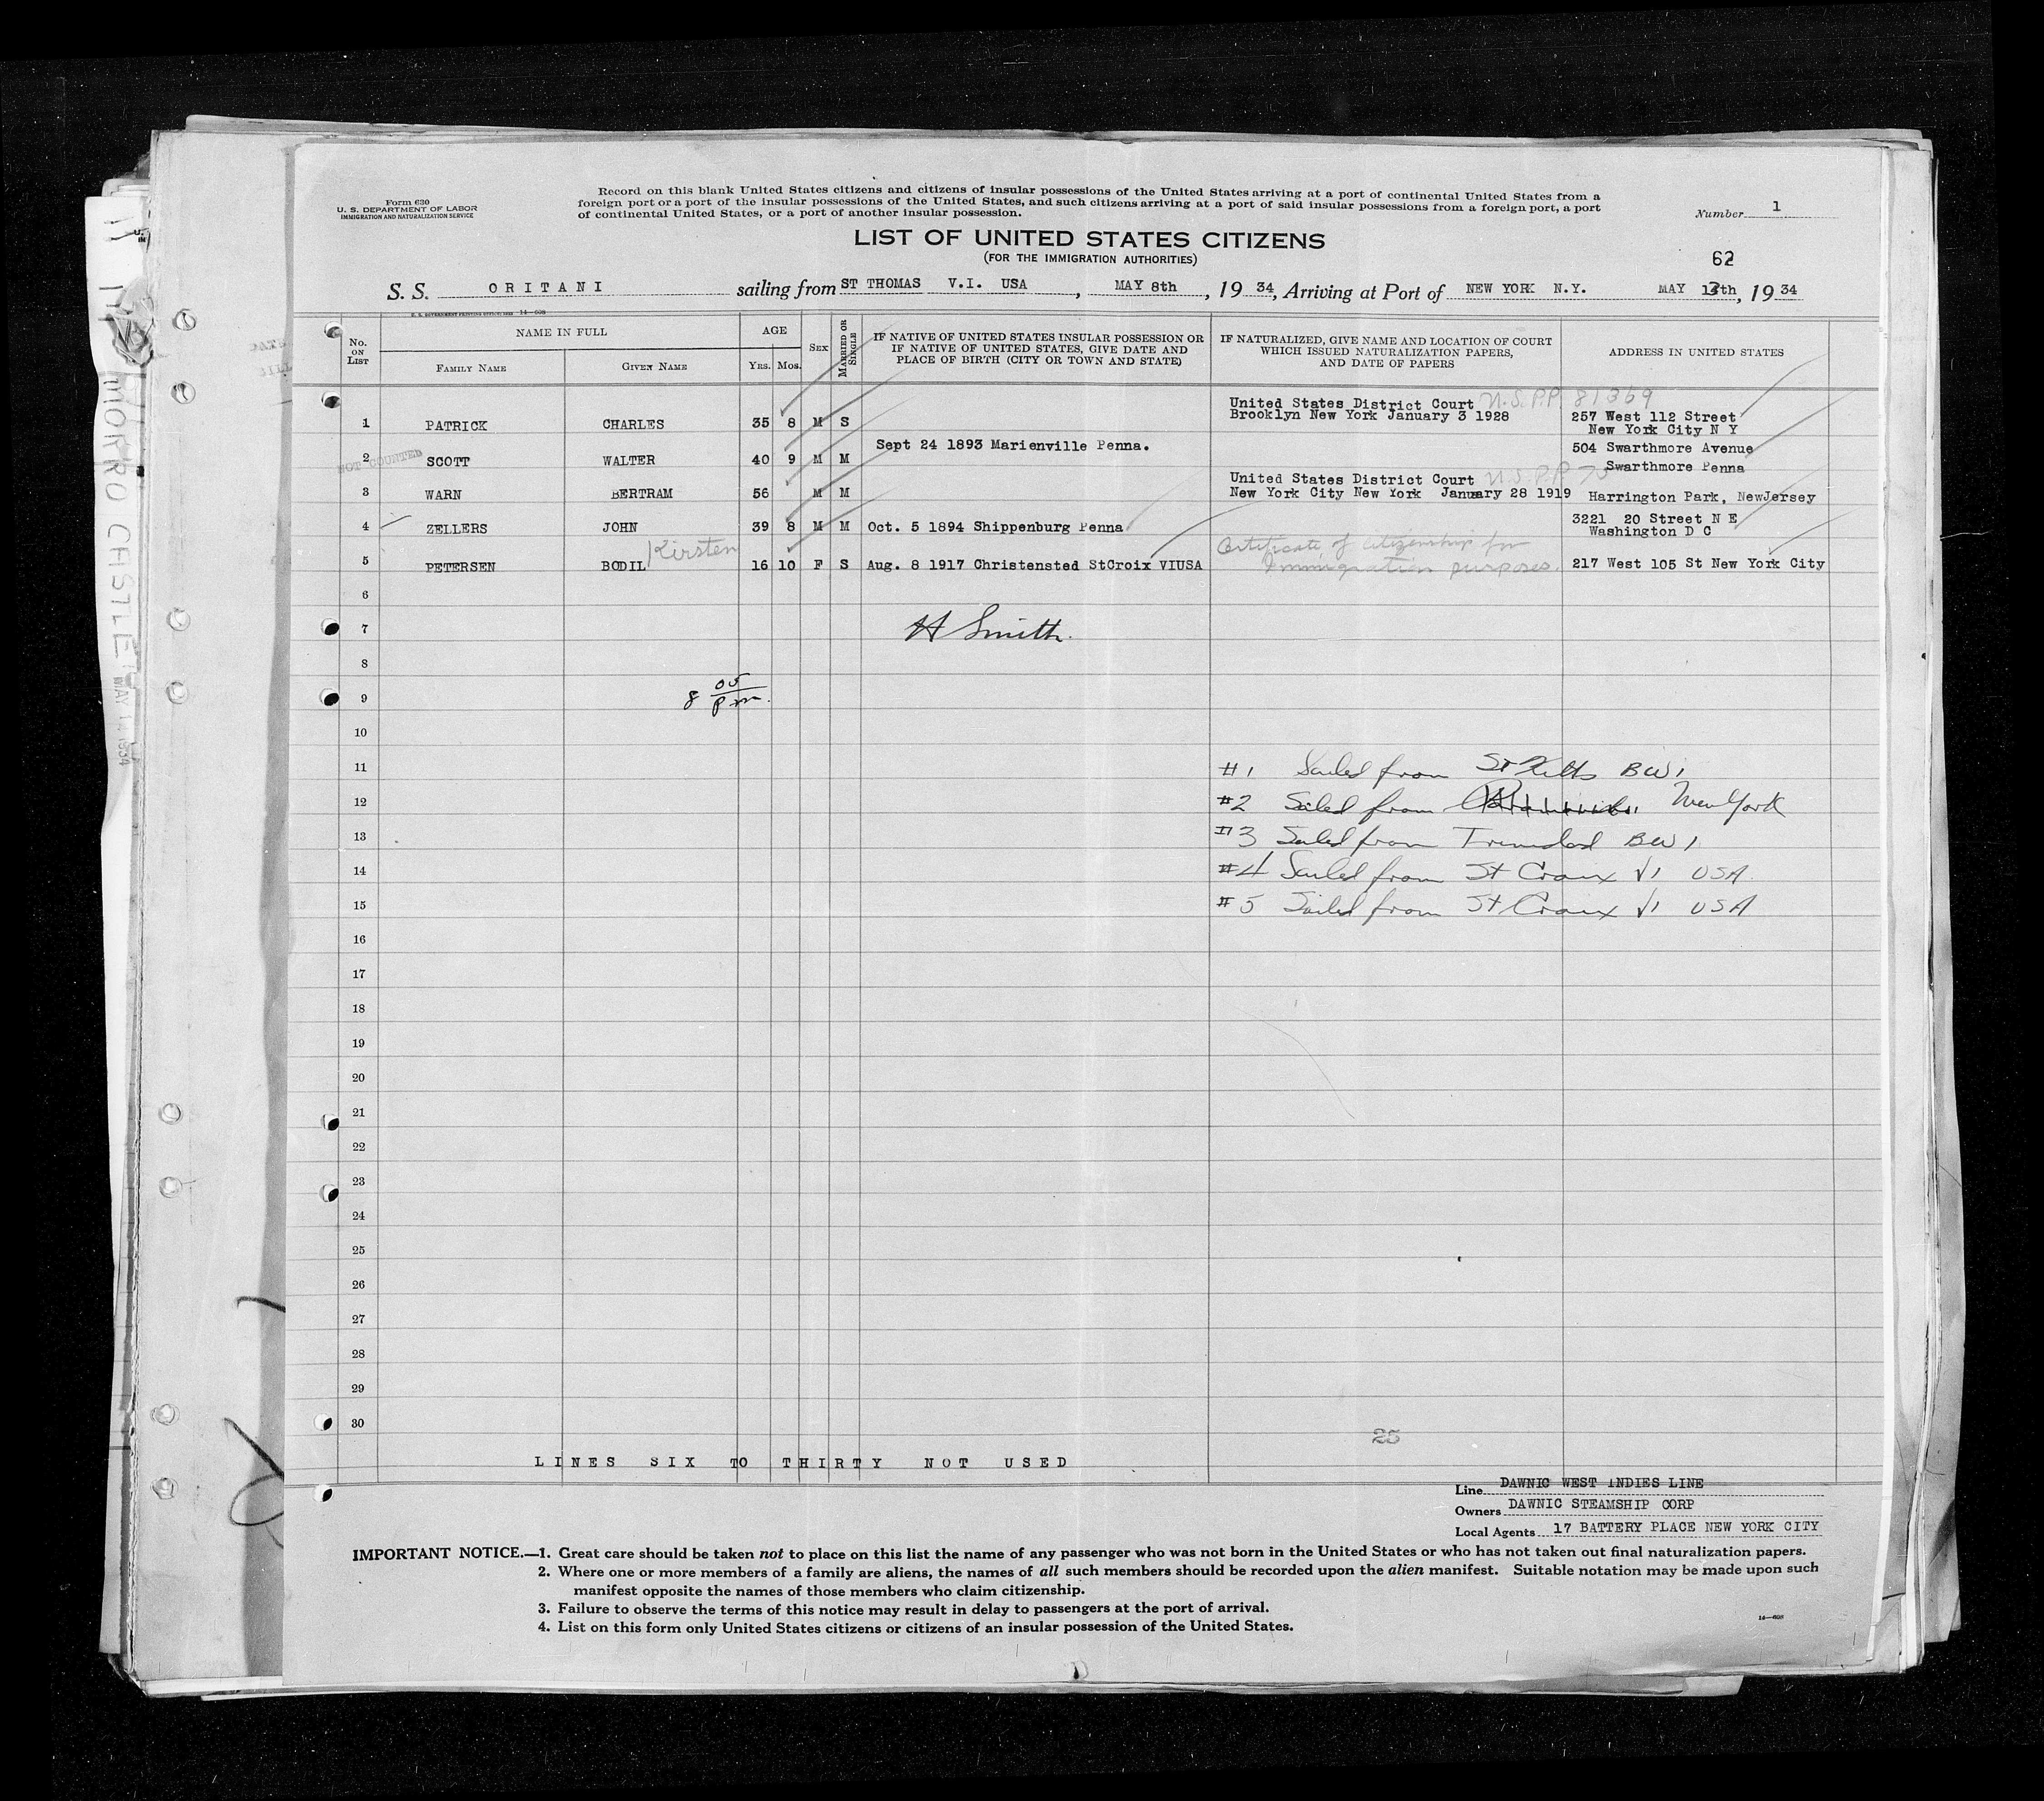 Form 630
U. S. DEPARTMENT OF LABOR
IMMIGRATION AND NATURALIZATION SERVICE
Record on this blank United States citizens and citizens of insular possessions of the United States arriving at a port of continental United States from a
foreign port or a port of the insular possessions of the United States, and such citizens arriving at a port of said insular possessions from a foreign port, a port
of continental United States, or a port of another insular possession.
Number 1
LIST OF UNITED STATES CITIZENS
(FOR THE IMMIGRATION AUTHORITIES)
62
S. S. ORITANI sailing from ST THOMAS V.I. USA, MAY 8th, 19 34, Arriving at Port of NEW YORK N.Y. MAY 13th, 19 34
No. ON LIST
NAME IN FULL
FAMILY NAME
GIVEN NAME
AGE
YRS. MOS.
SEX
MARRIED OR SINGLE
IF NATIVE OF UNITED STATES INSULAR POSSESSION OR
IF NATIVE OF UNITED STATES, GIVE DATE AND
PLACE OF BIRTH (CITY OR TOWN AND STATE)
IF NATURALIZED, GIVE NAME AND LOCATION OF COURT
WHICH ISSUED NATURALIZATION PAPERS,
AND DATE OF PAPERS
ADDRESS IN UNITED STATES
1 PATRICK CHARLES 35 8 M S
United States District Court U.S.P.P. 81369
Brooklyn New York January 3 1928
257 West 112 Street
New York City N Y
NOT COUNTED
2 SCOTT WALTER 40 9 M M Sept 24 1893 Marienville Penna.
504 Swarthmore Avenue
Swarthmore Penna
3 WARN BERTRAM 56 M M
United States District Court U.S.P.P. 75
New York City New York January 28 1919
Harrington Park, NewJersey
4 ZELLERS JOHN 39 8 M M Oct. 5 1894 Shippenburg Penna
3221 20 Street N E
Washington D C
5 PETERSEN BODIL Kirsten 16 10 F S Aug. 8 1917 Christensted StCroix VIUSA
Certificate of Citizenship for
Immigration purposes.
217 West 105 St New York City
6
7 H Smith.
8
9 8 05 pm.
10
11 #1 Sailed from St Kitts BWI
12 #2 Sailed from New York
13 #3 Sailed from Trinidad BWI
14 #4 Sailed from St Croix VI USA
15 #5 Sailed from St Croix VI USA
16
17
18
19
20
21
22
23
24
25
26
27
28
29
30
25
LINES SIX TO THIRTY NOT USED
Line DAWNIC WEST INDIES LINE
Owners DAWNIC STEAMSHIP CORP
Local Agents 17 BATTERY PLACE NEW YORK CITY
IMPORTANT NOTICE.—1. Great care should be taken not to place on this list the name of any passenger who was not born in the United States or who has not taken out final naturalization papers.
2. Where one or more members of a family are aliens, the names of all such members should be recorded upon the alien manifest. Suitable notation may be made upon such
manifest opposite the names of those members who claim citizenship.
3. Failure to observe the terms of this notice may result in delay to passengers at the port of arrival.
4. List on this form only United States citizens or citizens of an insular possession of the United States.
14—608
MORRO CASTLE
MAY 14 1934